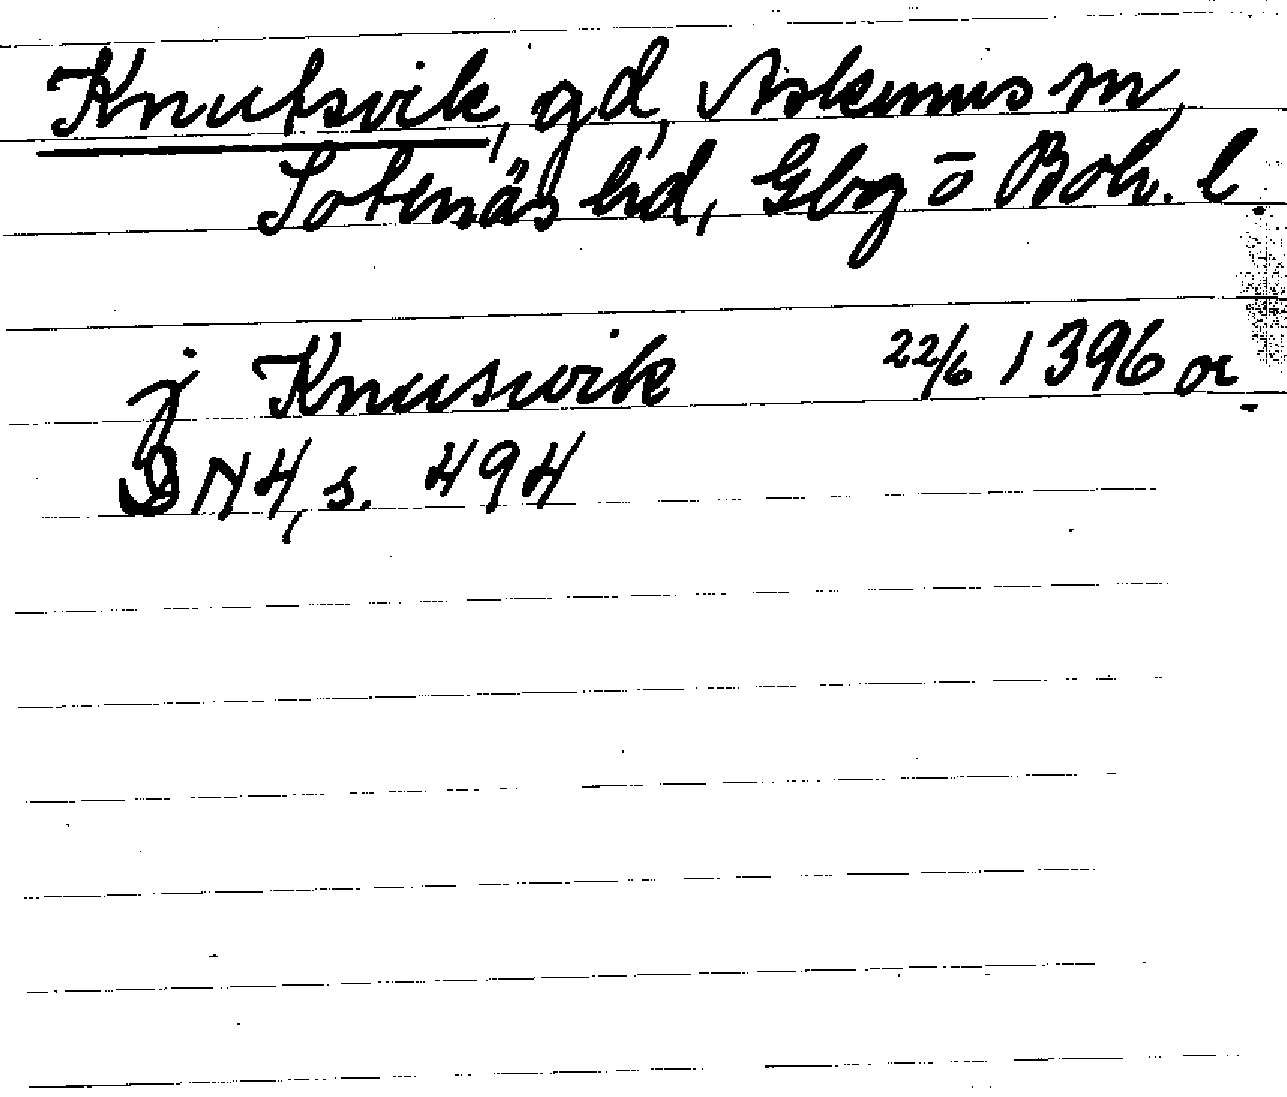 Knutsvik, gd, Askums sn,
Sotenäs hd, Gbg o Boh. l.
j Knuswik 22/6 1396 or.
DN 4, s. 494